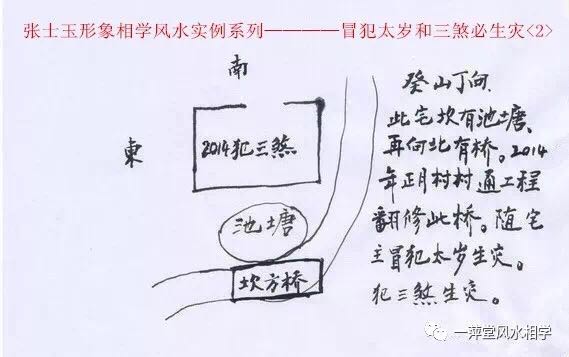 张士玉形象相学风水实例系列————冒犯太岁和三煞必生灾<2>
南
東
2014犯三煞
池塘
坎方桥
癸山丁向.
此宅坎有池塘,
再向北有桥。2014
年正月村村通工程
翻修此桥。随宅
主冒犯太岁生灾。
犯三煞生灾。
一萍堂风水相学